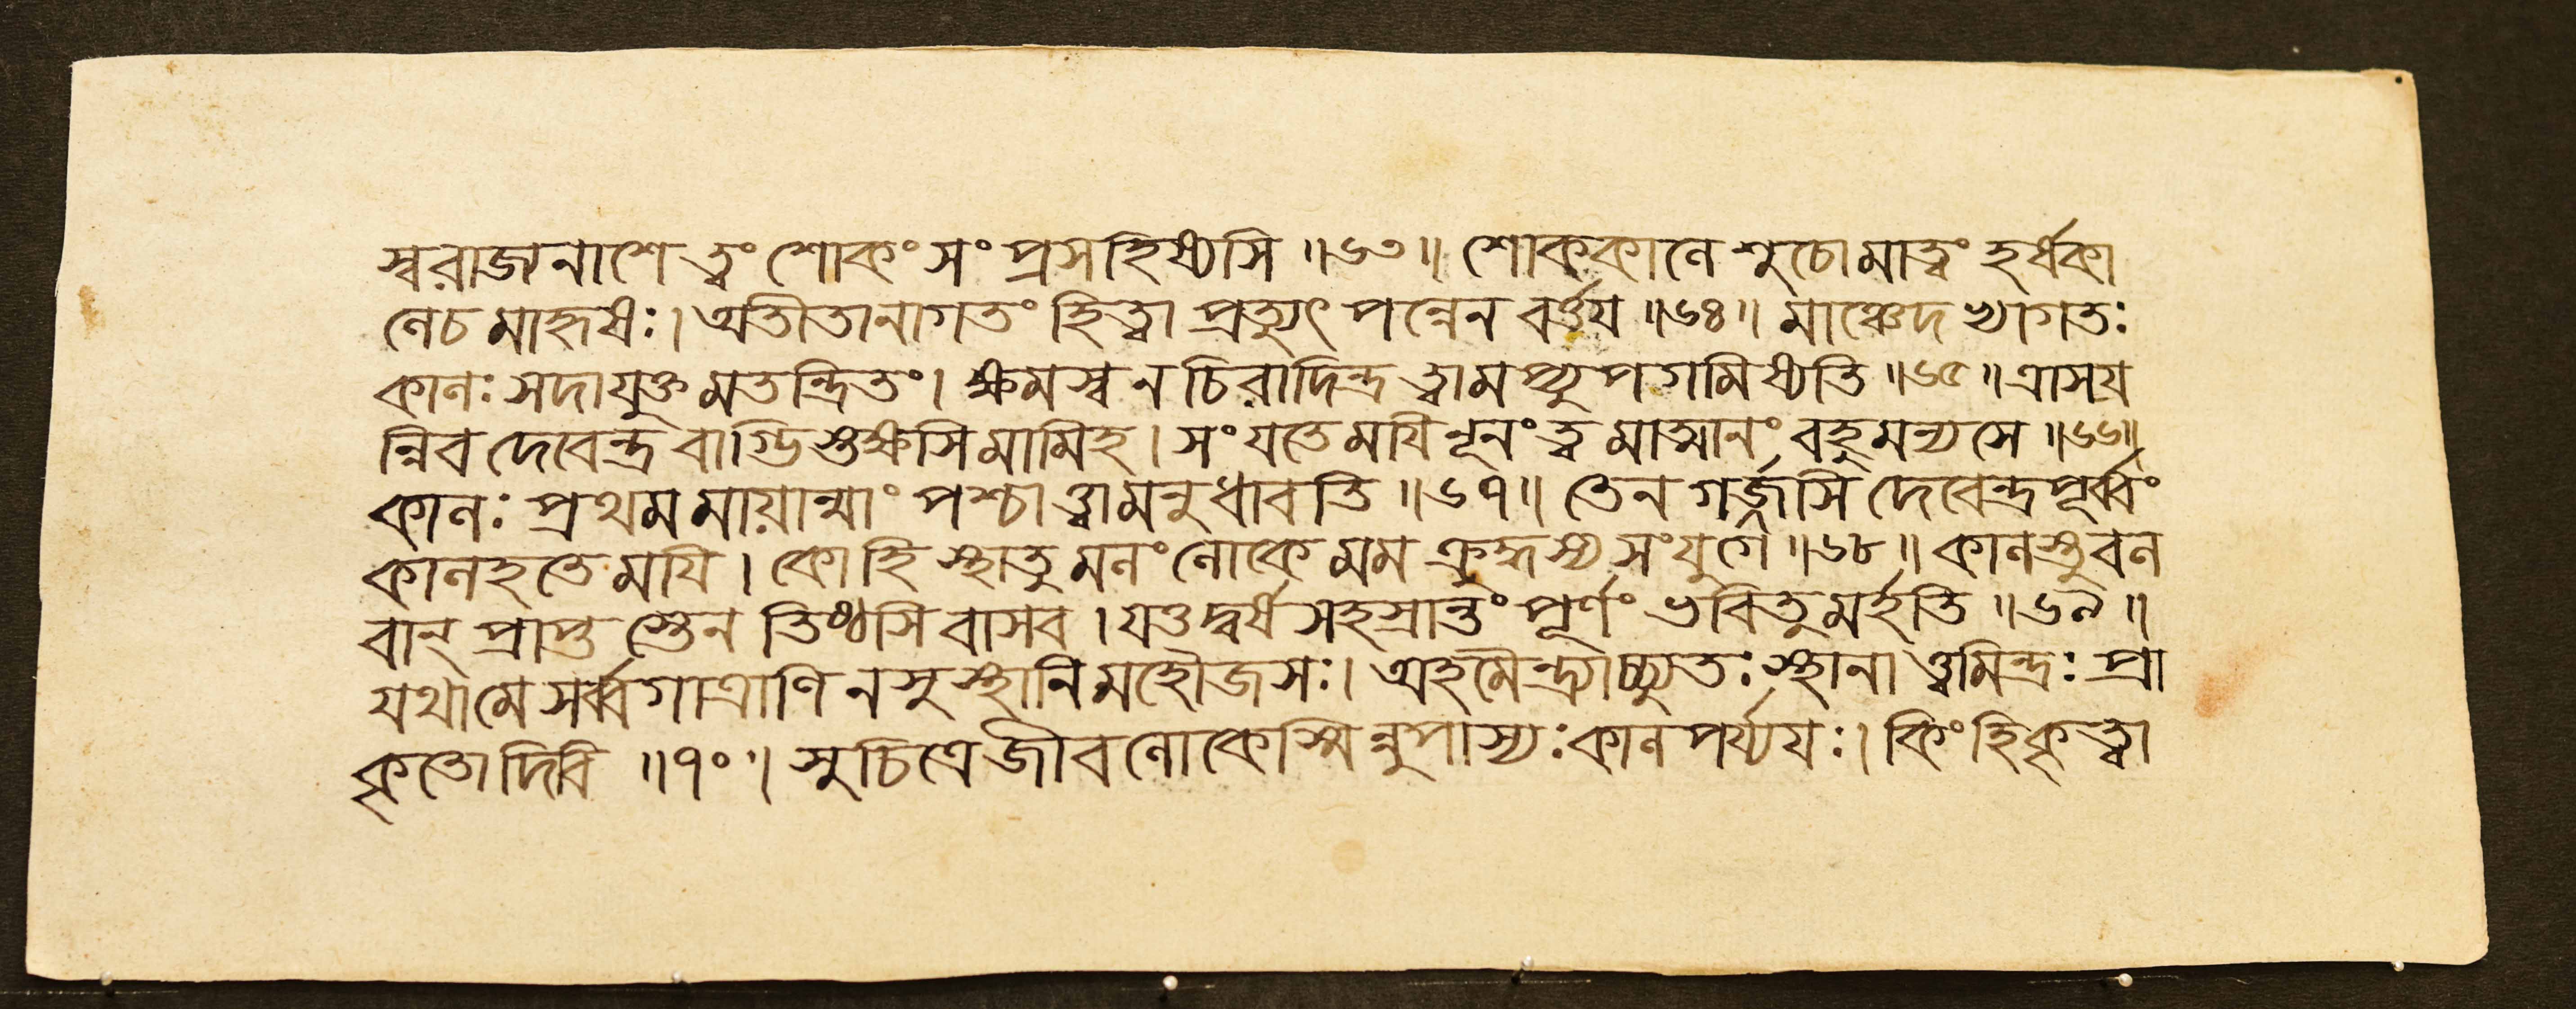 স্বরাজ্যনাশে ত্বং শোকং সং প্রসহিষ্যসি ॥৬৩॥ শোককালে শুচো মাত্বং হর্ষকা
লেচ মাহৃষঃ। অতীতানাগতং হিত্বা প্রত্যুৎপন্নেন বর্ত্তয় ॥৬৪॥ মাঞ্চেদভ্যাগতঃ
কালঃ সদাযুক্তমতন্দ্রিতং। ক্ষমস্ব ন চিরাদিন্দ্র ত্বামপ্যুপগমিষ্যতি ॥৬৫॥ ত্রাসয়
ন্নিব দেবেন্দ্র বাগ্ভিস্তক্ষসি মামিহ। সংযতে ময়ি নূনং ত্বমাত্মানং বহুমন্যসে ॥৬৬॥
কালঃ প্রথমমায়ান্মাং পশ্চাত্ত্বামনুধাবতি ॥৬৭॥ তেন গর্জ্জসি দেবেন্দ্র পূর্ব্বং
কালহতে ময়ি। কো হি স্থাতুমলং লোকে মম ক্রুদ্ধস্য সংযুগে ॥৬৮॥ কালস্তু বল
বান্ প্রাপ্তস্তেন তিষ্ঠসি বাসব। যত্তদ্বর্ষসহস্রান্তং পূর্ণং ভবিতুমর্হতি ॥৬৯॥
যথা মে সর্ব্বগাত্রাণি নসুস্থানি মহৌজসঃ। অহমৈন্দ্র্যাচ্চ্যুতঃ স্থানাত্ত্বমিন্দ্রঃ প্রা
কৃতো দিবি ॥৭০॥ সুচিত্রে জীবলোকেস্মিন্নুপাস্যঃ কালপর্য্যয়ঃ। কিং হি কৃত্বা